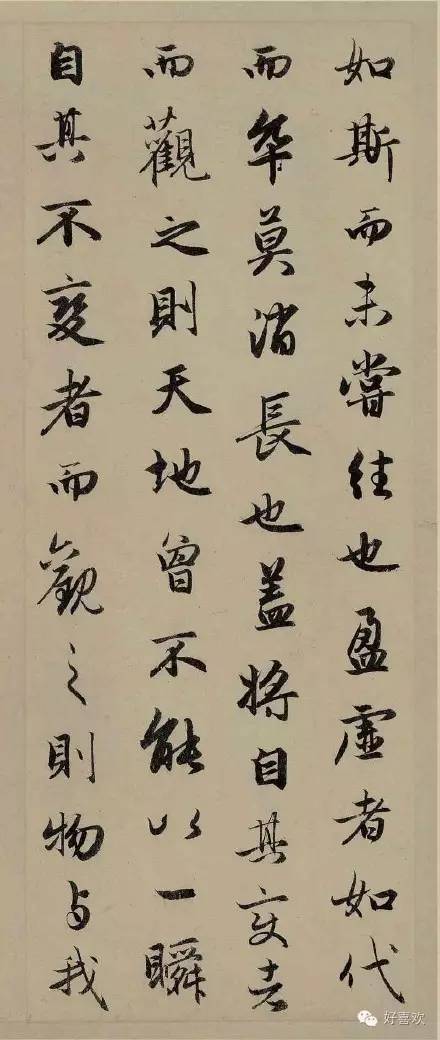 如斯而未嘗往也盈虛者如代
而卒莫消長也盖將自其變者
而觀之則天地曾不能以一瞬
自其不變者而觀之則物与我
好喜欢